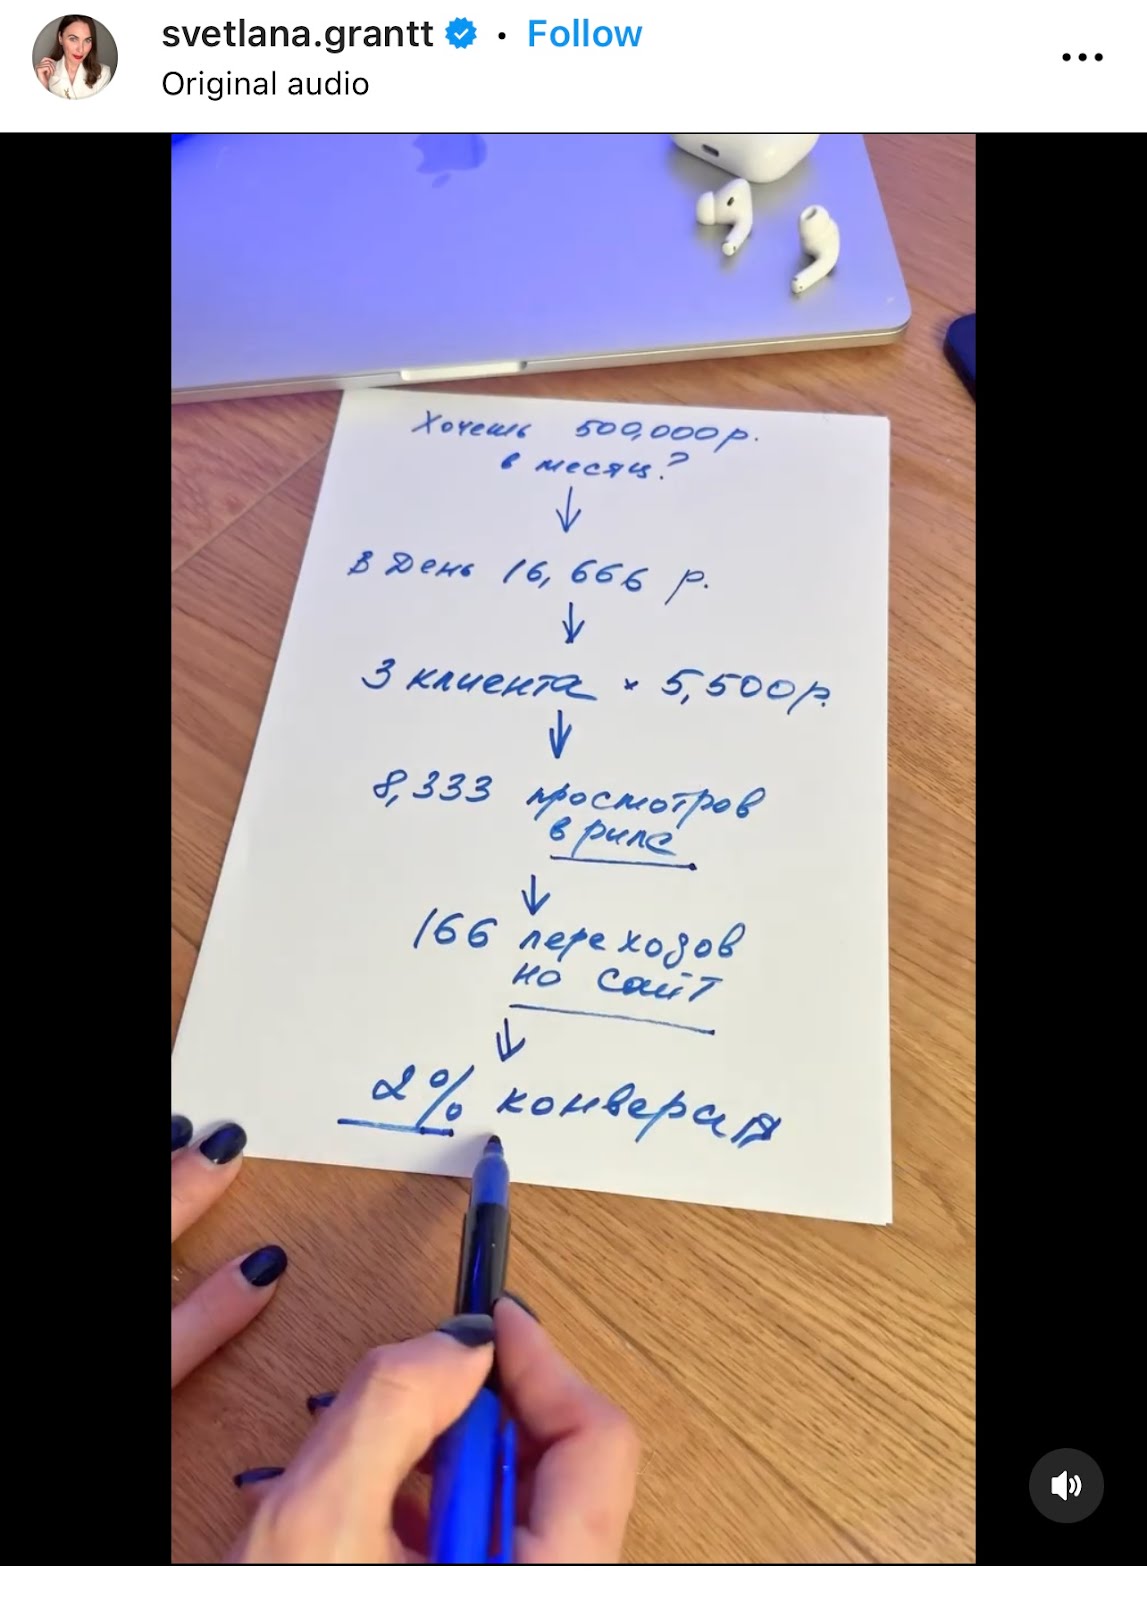 svetlana.grantt • Follow
Original audio
Хочешь 500,000р.
в месяц?
В День 16,666 р.
3 клиента × 5,500р.
8,333 просмотров
в рилс
166 переходов
на сайт
2% конверсия